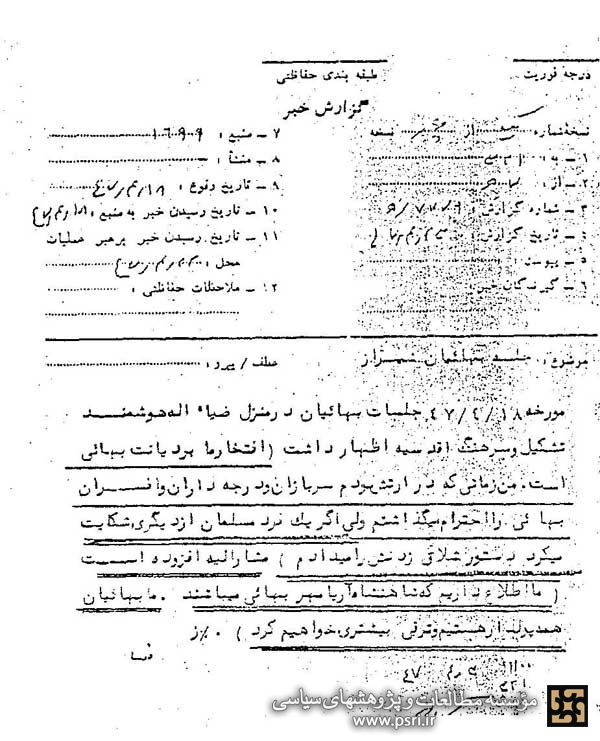 درجه فوریت
طبقه بندی حفاظتی
گزارش خبر
نسخه شماره از نسخه
۱ـ به :
۲ـ از :
۳ـ شماره گزارش :
٤ـ تاریخ گزارش :
٥ـ پیوست
٦ـ گیرندگان خبر:
۷ـ منبع : ۱٦۹۹
۸ـ منشأ :
۹ـ تاریخ وقوع :
۱۰ـ تاریخ رسیدن خبر به منبع :
۱۱ـ تاریخ رسیدن خبر برهبر عملیات
محل :
۱۲ـ ملاحظات حفاظتی :
موضوع : جلسه بهائیان شیراز
عطف / پیرو :
مورخه ٤۷/٤/۱۸ جلسات بهائیان در منزل ضیاء اله هوشمند
تشکیل و سرهنگ اقدسیه اظهار داشت ( افتخار ما بر دیانت بهائی
است . من زمانی که در ارتش بودم سربازان و درجه داران و افسران
بهائی را احترام میگذاشتم ولی اگر یک فرد مسلمان از دیگری شکایت
میکرد دستور شلاق زدنش را میدادم ) مشارالیه افزوده است
( ما اطلاع داریم که شاهنشاه آریامهر بهائی میباشند . ما بهائیان
همه پولدار هستیم و ترقی بیشتری خواهیم کرد )
مؤسسه مطالعات و پژوهشهای سیاسی
www.psri.ir